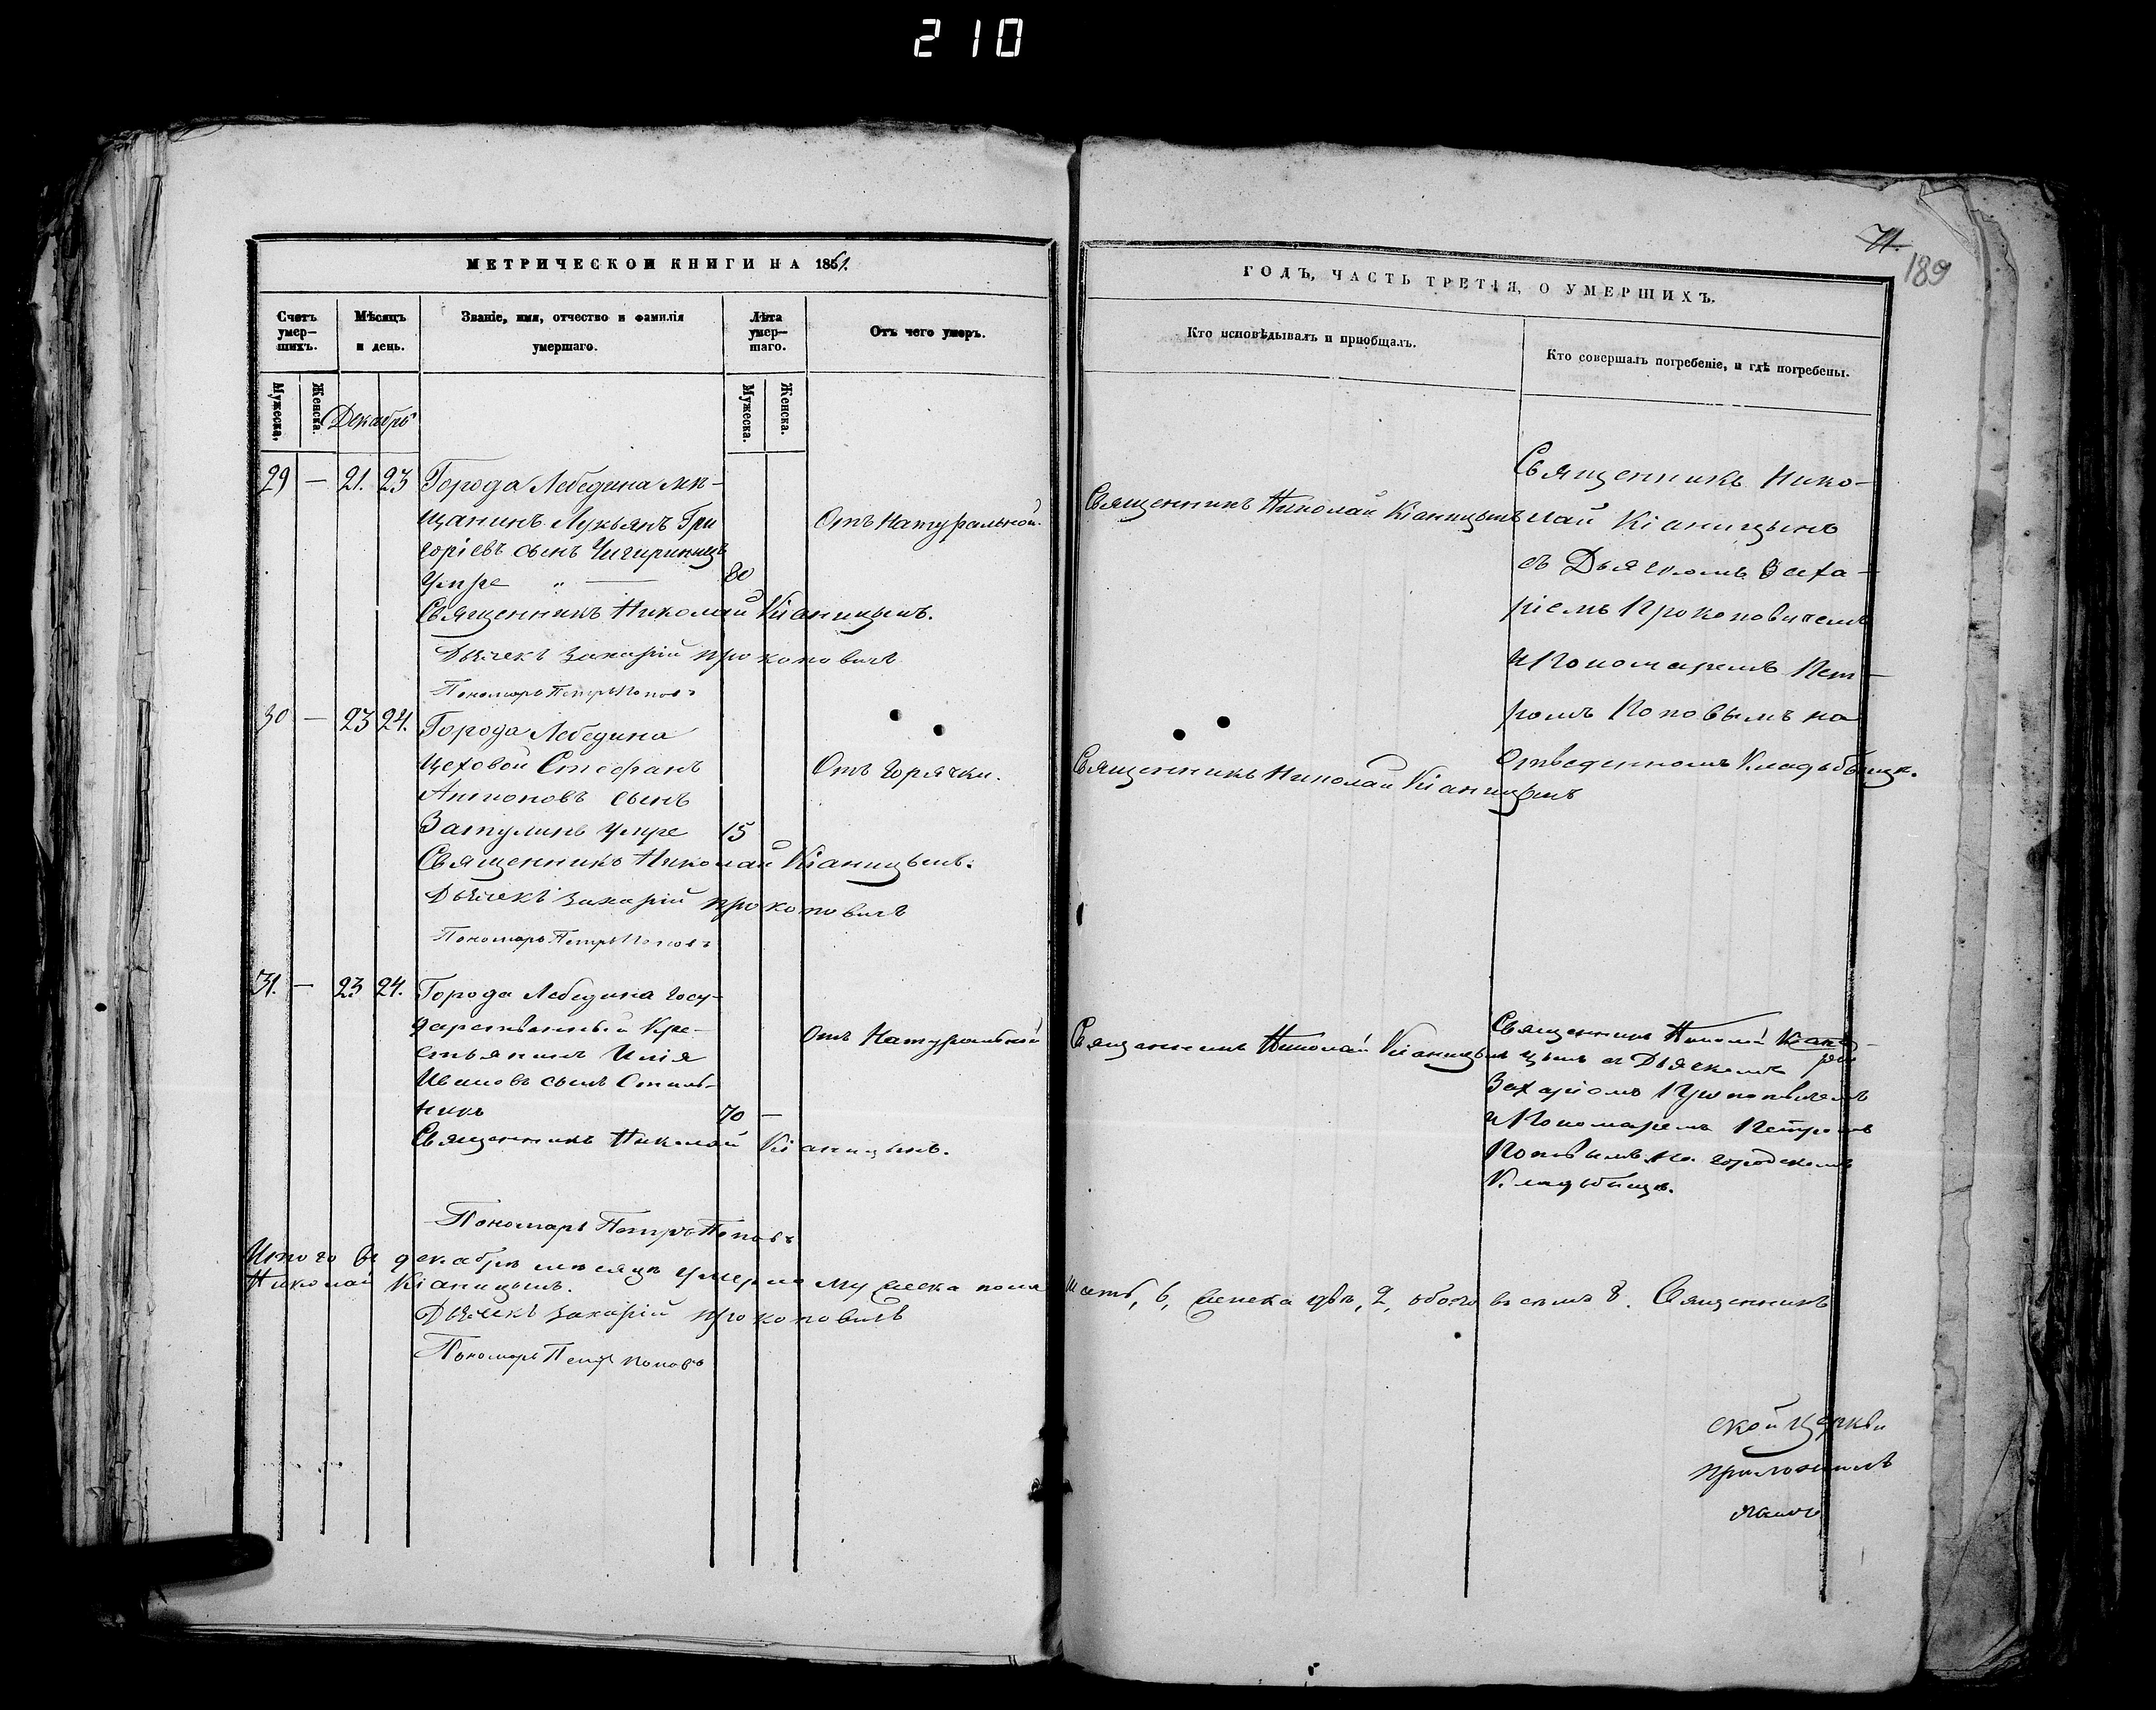 210
МЕТРИЧЕСКОЙ КНИГИ НА 1861.
Счетъ умер-шихъ.
Мѣсяцъ и день.
Званіе, имя, отчество и фамилія умершаго.
Лѣта умер-шаго.
Отъ чего умеръ.
Мужеска.
Женска.
Мужеска.
Женска.
Декабрь
29 — 21. 23 Города Лебедина мѣ-
щанинъ Лукьянъ Гри
горіевъ сынъ Чигиринецъ
Умре „ — 80
Отъ Натуральной.
Священникъ Николай Кіаницынъ.
Дьячекъ Захарій Прокоповичъ
Пономарь Петръ Поповъ
30 — 23 24. Города Лебедина
Цеховой Стефанъ
Антоновъ сынъ
Затулинъ Умре 15
Отъ Горячки.
Священникъ Николай Кіаницынъ.
Дьячекъ Захарій Прокоповичъ
Пономарь Петръ Поповъ
31. — 23 24. Города Лебедина Госу-
дарственный Кре-
стьянинъ Илія
Ивановъ сынъ
никъ 70 —
Отъ Натуральной
Священникъ Николай Кіаницынъ.
Пономарь Петръ Поповъ
Итого въ декабрѣ мѣсяцѣ умерло мужеска пола
Николай Кіаницынъ.
Дьячекъ Захарій Прокоповичъ
Пономарь Петръ Поповъ
71.
189
ГОДЪ, ЧАСТЬ ТРЕТІЯ, О УМЕРШИХЪ.
Кто исповѣдывалъ и пріобщалъ.
Кто совершалъ погребеніе, и гдѣ погребены.
Священникъ Николай Кіаницынъ
Священникъ Нико-
лай Кіаницынъ
съ Дьячкомъ Заха-
ріемъ Прокоповичемъ
и Пономаремъ Пет-
ромъ Поповымъ на
Отведенномъ Кладьбищѣ.
Священникъ Николай Кіаницынъ
Священникъ Николай Кіаницынъ
Священникъ Николай Кіани-
цынъ съ Дьячкомъ
Захаріемъ Прокоповичемъ
и Пономаремъ Петромъ
Поповымъ на городскомъ
Кладьбищѣ.
шесть, 6, женска двѣ, 2, обоего восемь 8. Священникъ
ской Церкви
приложилъ